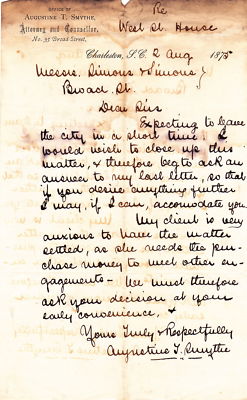 Re
West St. House
OFFICE OF
AUGUSTINE T. SMYTHE,
Attorney and Counsellor,
No. 35 Broad Street,
Charleston, S.C. 2 Aug 1875
Messrs. Simons & Simons
Broad St.
Dear Sirs
Expecting to leave
the city in a short time. I
would wish to close up this
matter, & therefore beg to ask an
answer to my last letter, so that
if you desire anything further
I may, if I can, accomodate you.
My client is very
anxious to have the matter
settled, as she needs the pur-
chase money to meet other en-
gagements - We must therefore
ask your decision at your
early convenience, &
Yours Truly & Respectfully
Augustine T. Smythe